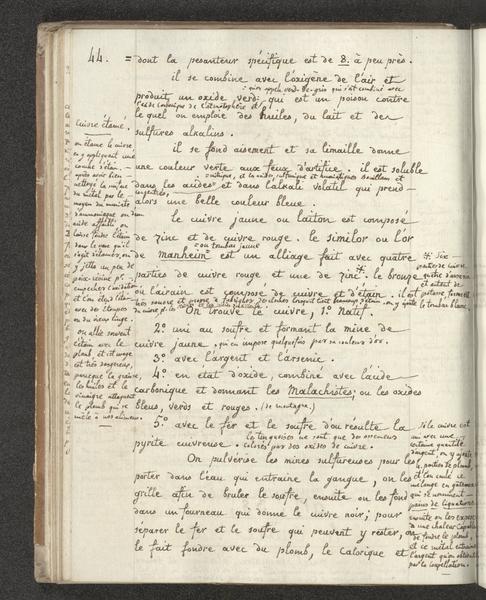 44. = dont la pesanteur spécifique est de 8. à peu près.
il se combine avec l'oxigène de l'air et
produit un oxide verd: qui est un poison contre
le quel on emploie des huiles, du lait et des
sulfures alkalins.
il se fond aisement et sa limaille donne
une couleur verte aux feux d'artifice. il est soluble
dans les acides et dans l'alkali volatil qui prend
alors une belle couleur bleue.
le cuivre jaune ou laiton est composé
de zinc et de cuivre rouge. le similor ou l'or
ou tombac jaune
de manheim est un alliage fait avec quatre
parties de cuivre rouge et une de zinc. le bronze
ou l'airain est composé de cuivre et d'étain.
On trouve le cuivre, 1.º natif.
2.º uni au soufre et formant la mine de
cuivre jaune. qu'on impose quelquefois par sa couleur d'or.
3.º avec l'argent et l'arsenic.
4.º en état d'oxide, combiné avec l'acide
carbonique et donnant les Malachistes, ou les oxides
bleus, verds et rouges. (de montagne.)
5.º avec le fer et le soufre d'ou résulte la
pyrite cuivreuse. les turquoises ne sont que des ossemens
colorés par des oxides de cuivre.
On pulvérise les mines sulfureuses pour les
porter dans l'eau qui entraine la gangue, on les
grille afin de bruler le soufre, ensuite on les fond
dans un fourneau qui donne le cuivre noir; pour
séparer le fer et le soufre qui peuvent y rester, on
le fait fondre avec du plomb, le calorique et
Cuivre étamé.
on étame le cuivre
en y appliquant une
couche d'étain.
après avoir bien
nettoyé la surface
du métal par le
moyen du muriate
d'ammoniaque
fondre l'étain
dans le vase qu'il
s'agit d'étamer, on
y jette un peu de
poix-résine pr.
empecher l'oxidation
et l'on étend l'étain
avec des étoupes
ou du vieux linge.
on allie souvent
l'étain avec le
plomb et cet usage
est très dangereux,
parceque la graisse,
les huiles et le
vinaigre attaquent
le plomb qui se
mêle à nos alimens.
Six
parties de cuivre
et autant de
potasse forment
le tombac blanc.
Si le cuivre est
uni avec une
certaine quantité
d'argent, on y ajoute
parties de plomb,
et l'on coule ce
mélange en gâteaux
qui se nomment
pains de liquation
ensuite on les expose
à une chaleur capable
de fondre le plomb,
et ce métal entraine
l'argent qu'on obtient
par la coupellation.